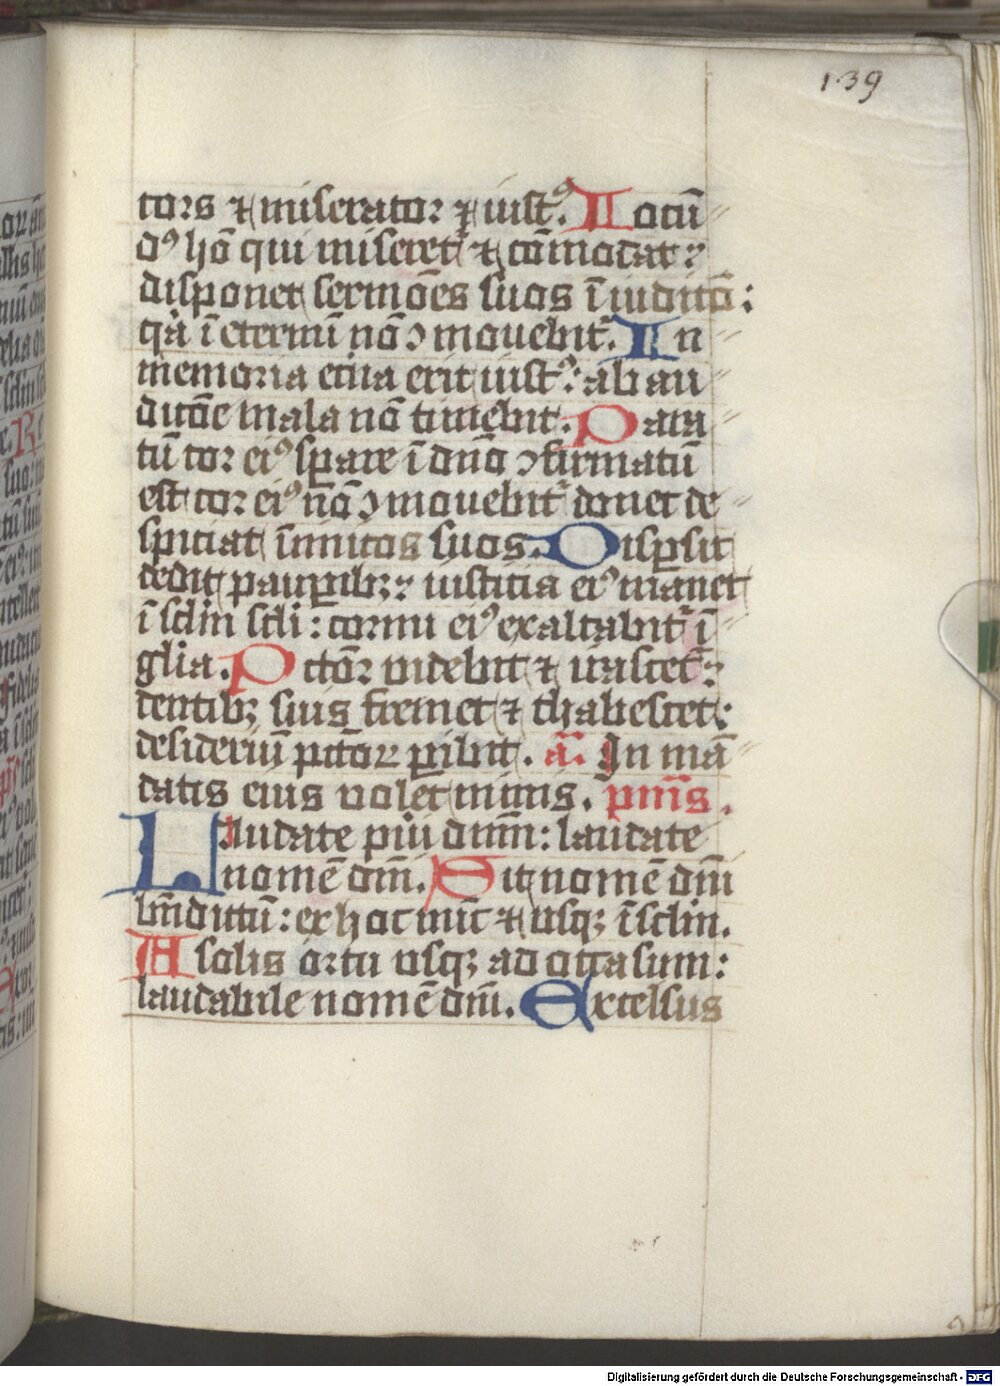 139
cors ⁊ miserator ⁊ iustꝰ. Iocū
dꝰ hō qui miseret᷑ ⁊ cōmodat:
disponet sermōēs suos ī iudicō:
qꝛ ī eternū nō ↄmouebit᷑. In
memoria et̄na erit iustꝰ: ab au
ditōe mala nō timebit. Para
tū cor eiꝰ sꝑare ī dn̄o ↄfirmatū
est cor eiꝰ nō ↄmouebit᷑ donec de
spiciat īimicos suos. Dispsit
dedit pauꝑibꝫ: iusticia eiꝰ manet
ī sclm̄ scl̄i: cornu eiꝰ exaltabit᷑ ī
gl̄ia. Pctōꝛ videbit ⁊ irascet᷑:
dentibꝫ suis fremet ⁊ thabescet:
desideriū pctōꝝ ꝑibit. a᷑. In mā
datis eius volet nimis. pm̄s.
Laudate pūi dn̄m: laudate
nomē dn̄i. Sit nomē dn̄i
bn̄dictū: ex hoc nūc ⁊ vsqꝫ ī sclm̄.
A solis ortu vsqꝫ ad occasum:
laudabile nomē dn̄i. Excelsus
Digitalisierung gefördert durch die Deutsche Forschungsgemeinschaft - DFG